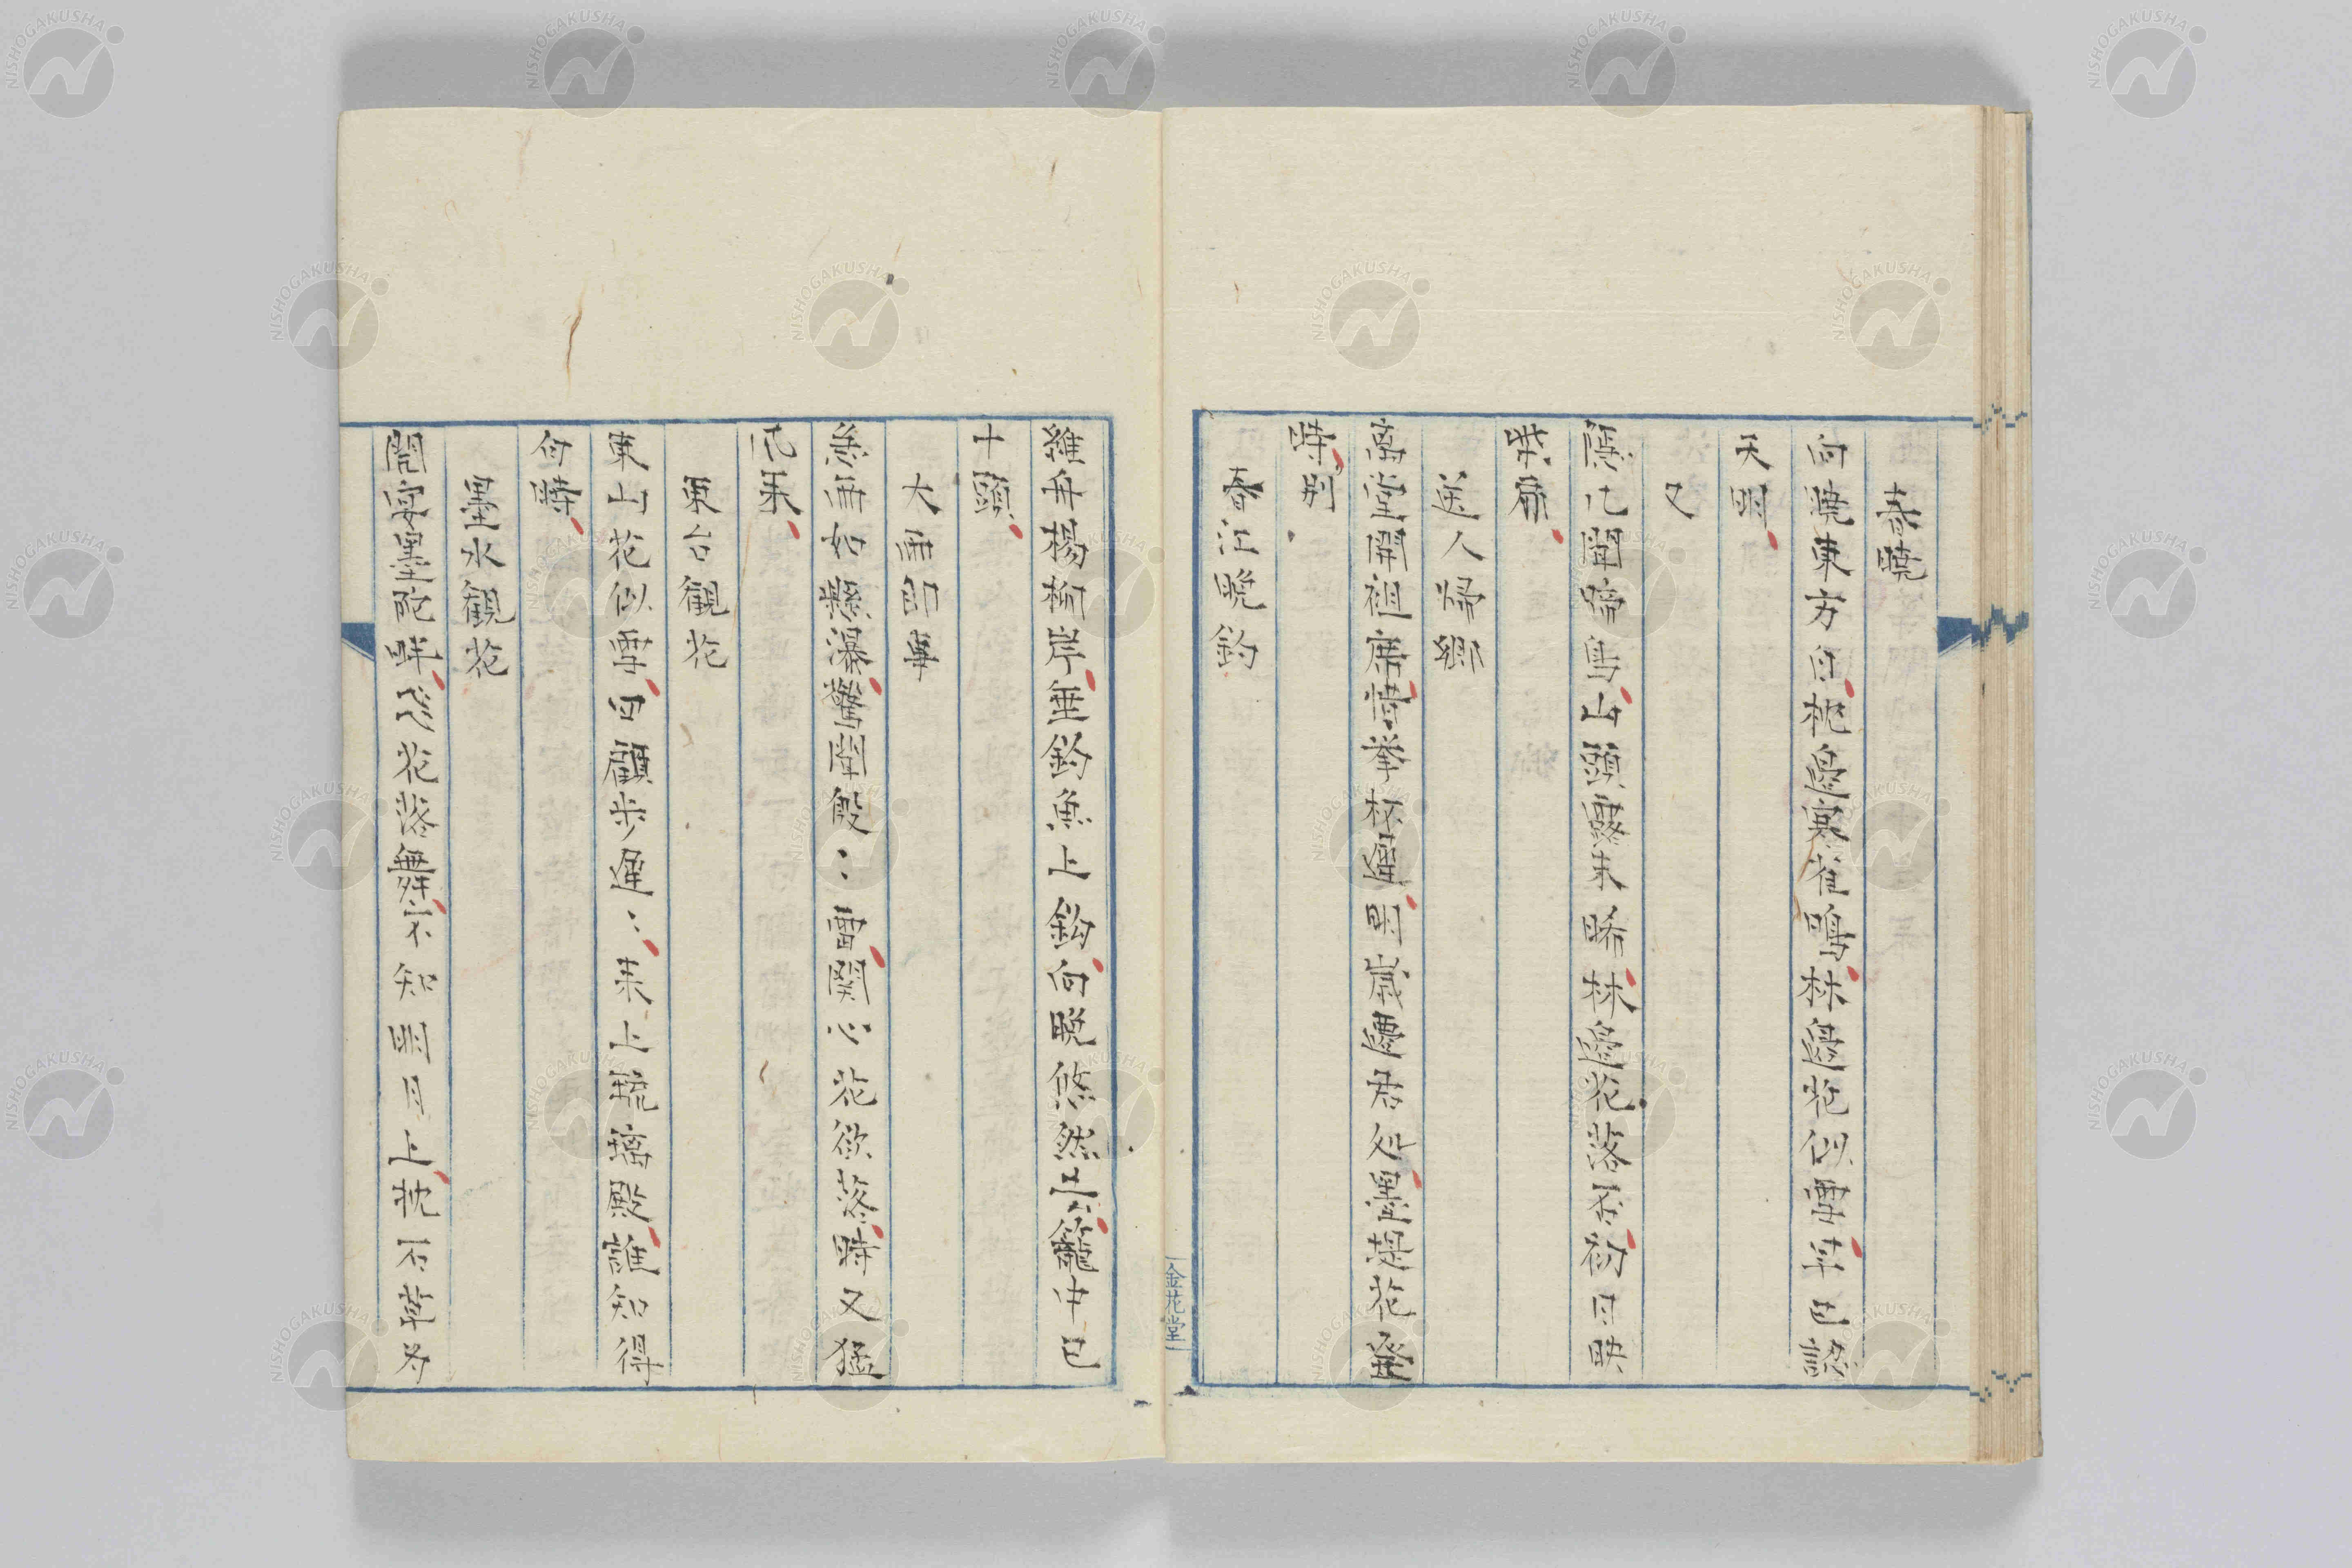 春暁
向暁東方白枕邉寒雀鳴林邉花似雪早已認
天明
又
隠几聞啼鳥山頭露未晞林邉花落否初日映
柴扉
送人帰郷
高堂開祖席惜別挙杯遅明歳遷居処墨堤花發
時
春江晩釣
維舟楊柳岸垂釣魚上鈎向晩悠然去籠中已
十頭
大雨即事
急雨如懸瀑驚聞殷々雷関心花欲落時又猛
風来
東台観花
東山花似雪回顧歩遅々来上琉璃殿誰知得
何時
墨水観花
閑宴墨陀畔飛花落舞衣不知明月上枕石草為
金花堂
NISHOGAKUSHA